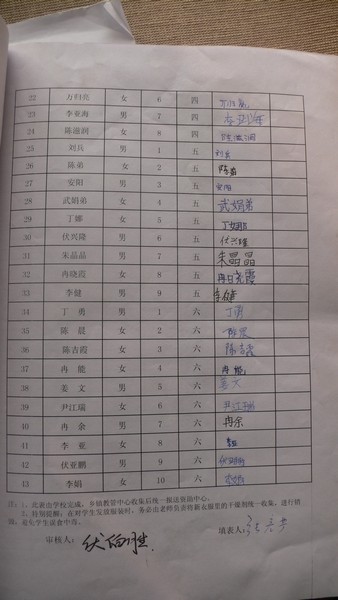 22 万归亮 女 6 四
23 李亚海 男 7 四 李亚海
24 陈滋润 女 8 四 陈滋润
25 刘兵 男 1 五 刘兵
26 陈弟 女 2 五 陈弟
27 安阳 男 3 五 安阳
28 武娟弟 女 4 五 武娟弟
29 丁娜 女 5 五 丁娜
30 伏兴隆 男 6 五 伏兴隆
31 朱晶晶 男 7 五 朱晶晶
32 冉晓霞 女 8 五 冉晓霞
33 李健 男 9 五 李健
34 丁勇 男 1 六 丁勇
35 陈晨 女 2 六 陈晨
36 陈吉霞 女 3 六 陈吉霞
37 冉能 女 4 六 冉能
38 姜文 男 5 六 姜文
39 尹江瑞 女 6 六 尹江瑞
40 冉余 男 7 六 冉余
41 李亚 女 8 六
42 伏亚鹏 男 9 六 伏亚鹏
43 李娟 女 10 六 李娟
注:1、此表由学校完成,乡镇教管中心收集后统一报送资助中心。
2、特别提醒:在对学生发放服装时,务必由老师负责将新衣服里的干燥剂统一收集,进行销
毁,避免学生误食中毒。
审核人: 填表人: